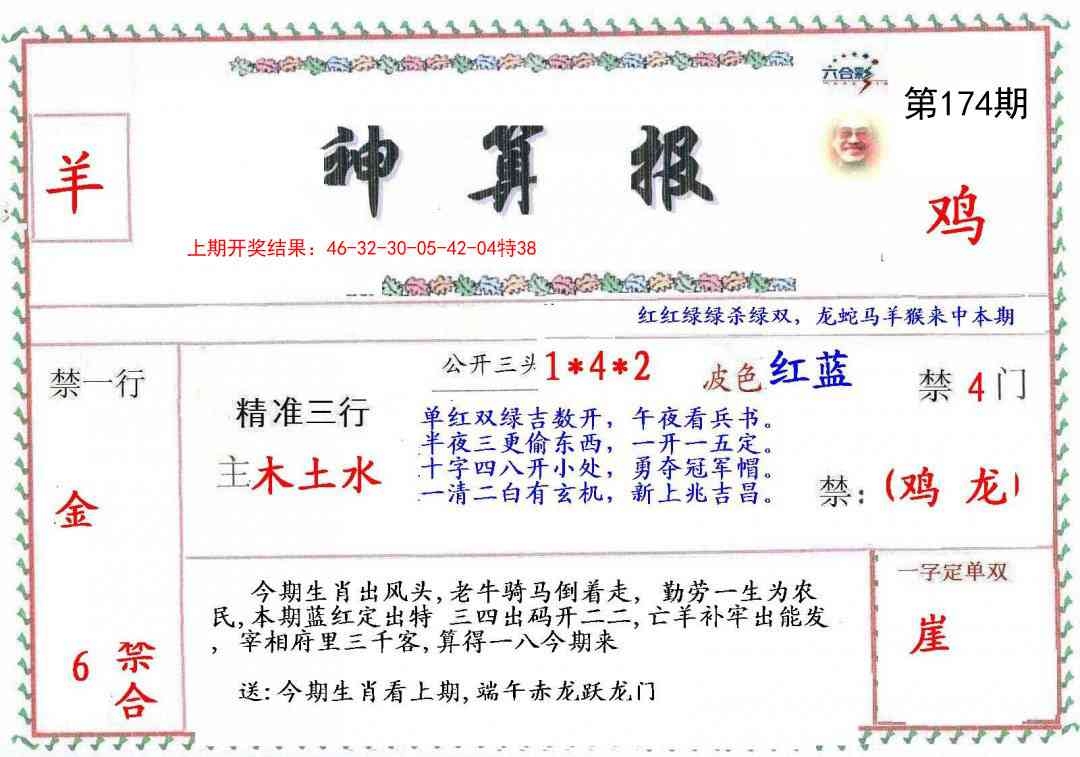 六合彩
第174期
羊
神算报
鸡
上期开奖结果：46-32-30-05-42-04特38
红红绿绿杀绿双，龙蛇马羊猴来中本期
禁一行
金
6 禁合
公开三头1*4*2 波色红蓝
精准三行
主木土水
单红双绿吉数开，午夜看兵书。
半夜三更偷东西，一开一五定。
十字四八开小处，勇夺冠军帽。
一清二白有玄机，新上兆吉昌。
禁4门
禁：(鸡 龙)
今期生肖出风头,老牛骑马倒着走, 勤劳一生为农
民,本期蓝红定出特 三四出码开二二,亡羊补牢出能发
, 宰相府里三千客,算得一八今期来
送:今期生肖看上期,端午赤龙跃龙门
一字定单双
崖